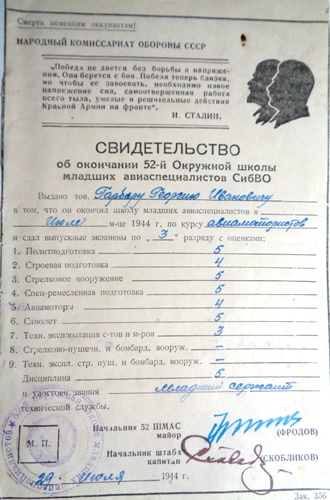 Смерть немецким оккупантам!
НАРОДНЫЙ КОМИССАРИАТ ОБОРОНЫ СССР
„Победа не дается без борьбы и напряже-
ния. Она берется с боя. Победа теперь близка,
но чтобы ее завоевать, необходимо новое
напряжение сил, самоотверженная работа
всего тыла, умелые и решительные действия
Красной Армии на фронте“.
И. СТАЛИН.
СВИДЕТЕЛЬСТВО
об окончании 52-й Окружной школы
младших авиаспециалистов СибВО
Выдано тов. Гарбару Георгию Ивановичу
в том, что он окончил школу младших авиаспециалистов в
Июле м-це 1944 г. по курсу авиамотористов
и сдал выпускные экзамены по „3“ разряду с оценками:
1. Политподготовка 5
2. Строевая подготовка 4
3. Стрелковое вооружение 5
4. Спец-ремесленная подготовка 5
5. Авиамоторы 4
6. Самолет 5
7. Техн. эксплоатация с-тов и м-ров 3
8. Стрелково-пушечн. и бомбард. вооруж. —
9. Техн. экспл. стр. пуш. и бомбард. вооруж. —
Дисциплина 5
и удостоен звания младший сержант
технической службы.
Начальник 52 ШМАС
майор (ФРОЛОВ)
М. П.
Начальник штаба
капитан (СКОБЛИКОВ)
29 июля 1944 г.
Зак. 356